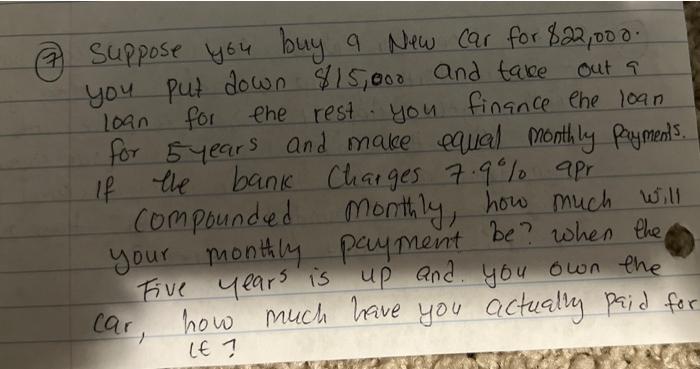 ⑦ Suppose you buy a New car for $22,000.
you put down $15,000 and take out a
loan for the rest. you finance the loan
for 5 years and make equal monthly payments.
If the bank charges 7.9% apr
compounded monthly, how much will
your monthly payment be? when the
Five years is up and. you own the
car, how much have you actually paid for
it?